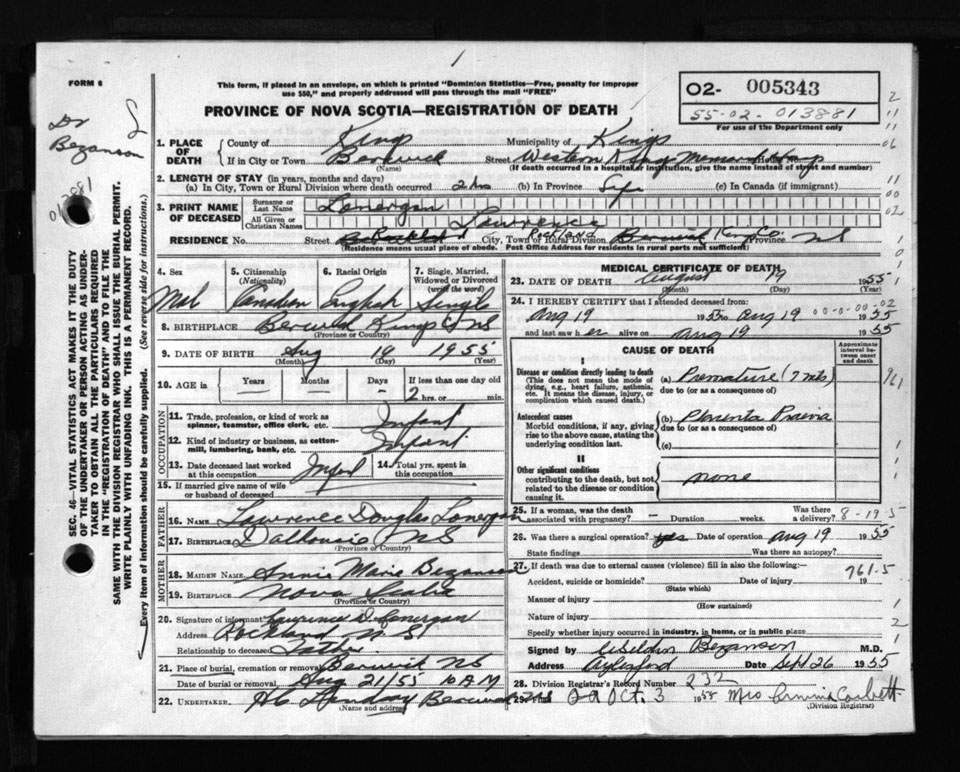 1
FORM 6
This form, if placed in an envelope, on which is printed "Dominion Statistics—Free, penalty for improper use $50," and properly addressed will pass through the mail "FREE"
PROVINCE OF NOVA SCOTIA—REGISTRATION OF DEATH
02- 005343
55-02-013881
For use of the Department only
Dr Bezanson
SEC. 46—VITAL STATISTICS ACT MAKES IT THE DUTY OF THE UNDERTAKER OR PERSON ACTING AS UNDERTAKER TO OBTAIN ALL THE PARTICULARS REQUIRED IN THE "REGISTRATION OF DEATH" AND TO FILE THE SAME WITH THE DIVISION REGISTRAR WHO SHALL ISSUE THE BURIAL PERMIT. WRITE PLAINLY WITH UNFADING INK. THIS IS A PERMANENT RECORD.
Every item of information should be carefully supplied. (See reverse side for instructions.)
1. PLACE OF DEATH County of Kings Municipality of Kings
If in City or Town Berwick Street Western Kings Memorial Hosp
(Name) (If death occurred in a hospital or institution, give the name instead of street and number)
2. LENGTH OF STAY (in years, months and days)
(a) In City, Town or Rural Division where death occurred 2 hrs (b) In Province Life (c) In Canada (if immigrant)
3. PRINT NAME OF DECEASED Surname or Last Name Lonergan
All Given or Christian Names Lawrence
RESIDENCE No. Street Rockland City, Town or Rural Division Rockland Berwick Kings Co. Province NS
(Residence means usual place of abode. Post Office Address for residents in rural parts not sufficient)
4. Sex 5. Citizenship (Nationality) 6. Racial Origin 7. Single, Married, Widowed or Divorced (write the word)
Male Canadian English Single
8. BIRTHPLACE Berwick Kings Co NS
(Province or Country)
9. DATE OF BIRTH Aug 19 1955
(Month) (Day) (Year)
10. AGE in Years Months Days If less than one day old
2 hrs. or min.
OCCUPATION
11. Trade, profession, or kind of work as spinner, teamster, office clerk, etc. Infant
12. Kind of industry or business, as cotton-mill, lumbering, bank, etc. Infant
13. Date deceased last worked at this occupation Infant 14. Total yrs. spent in this occupation
15. If married give name of wife or husband of deceased
FATHER
16. NAME Lawrence Douglas Lonergan
17. BIRTHPLACE Dalhousie NS
(Province or Country)
MOTHER
18. MAIDEN NAME Annie Marie Bezanson
19. BIRTHPLACE Nova Scotia
(Province or Country)
20. Signature of informant Lawrence D. Lonergan
Address Rockland N.S.
Relationship to deceased Father
21. Place of burial, cremation or removal Berwick NS
Date of burial or removal Aug 21/55 10 AM
22. UNDERTAKER Berwick NS
(Name and address)
MEDICAL CERTIFICATE OF DEATH
23. DATE OF DEATH August 19 1955
(Month) (Day)
24. I HEREBY CERTIFY that I attended deceased from:
Aug 19 1955 to Aug 19 1955
and last saw h er alive on Aug 19 1955
CAUSE OF DEATH
Approximate interval between onset and death
I
Disease or condition directly leading to death (This does not mean the mode of dying, e.g., heart failure, asthenia, etc. It means the disease, injury, or complication which caused death.)
(a) Premature (7 mts)
due to (or as a consequence of)
Antecedent causes
Morbid conditions, if any, giving rise to the above cause, stating the underlying condition last.
(b) Placenta Praevia
due to (or as a consequence of)
(c)
II
Other significant conditions contributing to the death, but not related to the disease or condition causing it.
none
25. If a woman, was the death associated with pregnancy? — Duration weeks. Was there a delivery? 8-19-5
26. Was there a surgical operation? yes Date of operation Aug 19 1955
State findings Was there an autopsy?
27. If death was due to external causes (violence) fill in also the following:—
761.5
Accident, suicide or homicide? Date of injury 19
(State which)
Manner of injury
(How sustained)
Nature of injury
Specify whether injury occurred in industry, in home, or in public place
Signed by Weldon Bezanson M.D.
Address Aylesford Date Sept 26 1955
28. Division Registrar's Record Number 232
Oct. 3 1955 Mrs Corbett
(Division Registrar)